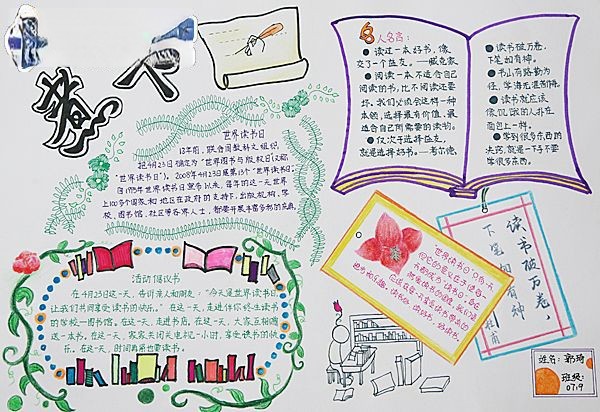 世界读书日
13年前,联合国教科文组织
把4月23日确定为“世界图书与版权日(又称
“世界读书日)。2008年4月23日是第13个“世界读书日。
自1995年世界读书日宣布以来,每年的这一天世界
上100多个国家和地区在政府的支持下,出版机构,学
校,图书馆,社区等各界人士,都要开展丰富多彩的庆典
活动倡议书
在4月23日这一天,告诉亲人和朋友:“今天是世界读书日,
让我们共同享受读书的快乐。”在这一天,走进伴你终生读书
的学校—图书馆。在这一天,走进书店。在这一天,大家互相赠
送一本书。在这一天,家家关闭电视一小时,享受读书的快
乐。在这一天,时间再紧也要读书。
名人名言:
● 读过一本好书,像
交了一个益友。——臧克家
● 阅读一本不适合自己
阅读的书,比不阅读还要
坏。我们必须会这样一种
本领,选择最有价值、最
适合自己所需要的读物。
● 仅次于选择益友,
就是选择好书。——考尔德
● 读书破万卷,
下笔如有神。
● 书山有路勤为
径,学海无涯苦作舟
● 读书就应该
像饥饿的人扑在
面包上一样。
● 学到很多东西的
诀窍,就是一下子不要
学很多东西。
读书破万卷,
下笔如有神
杜甫
姓名:郭琦
班级:
0719